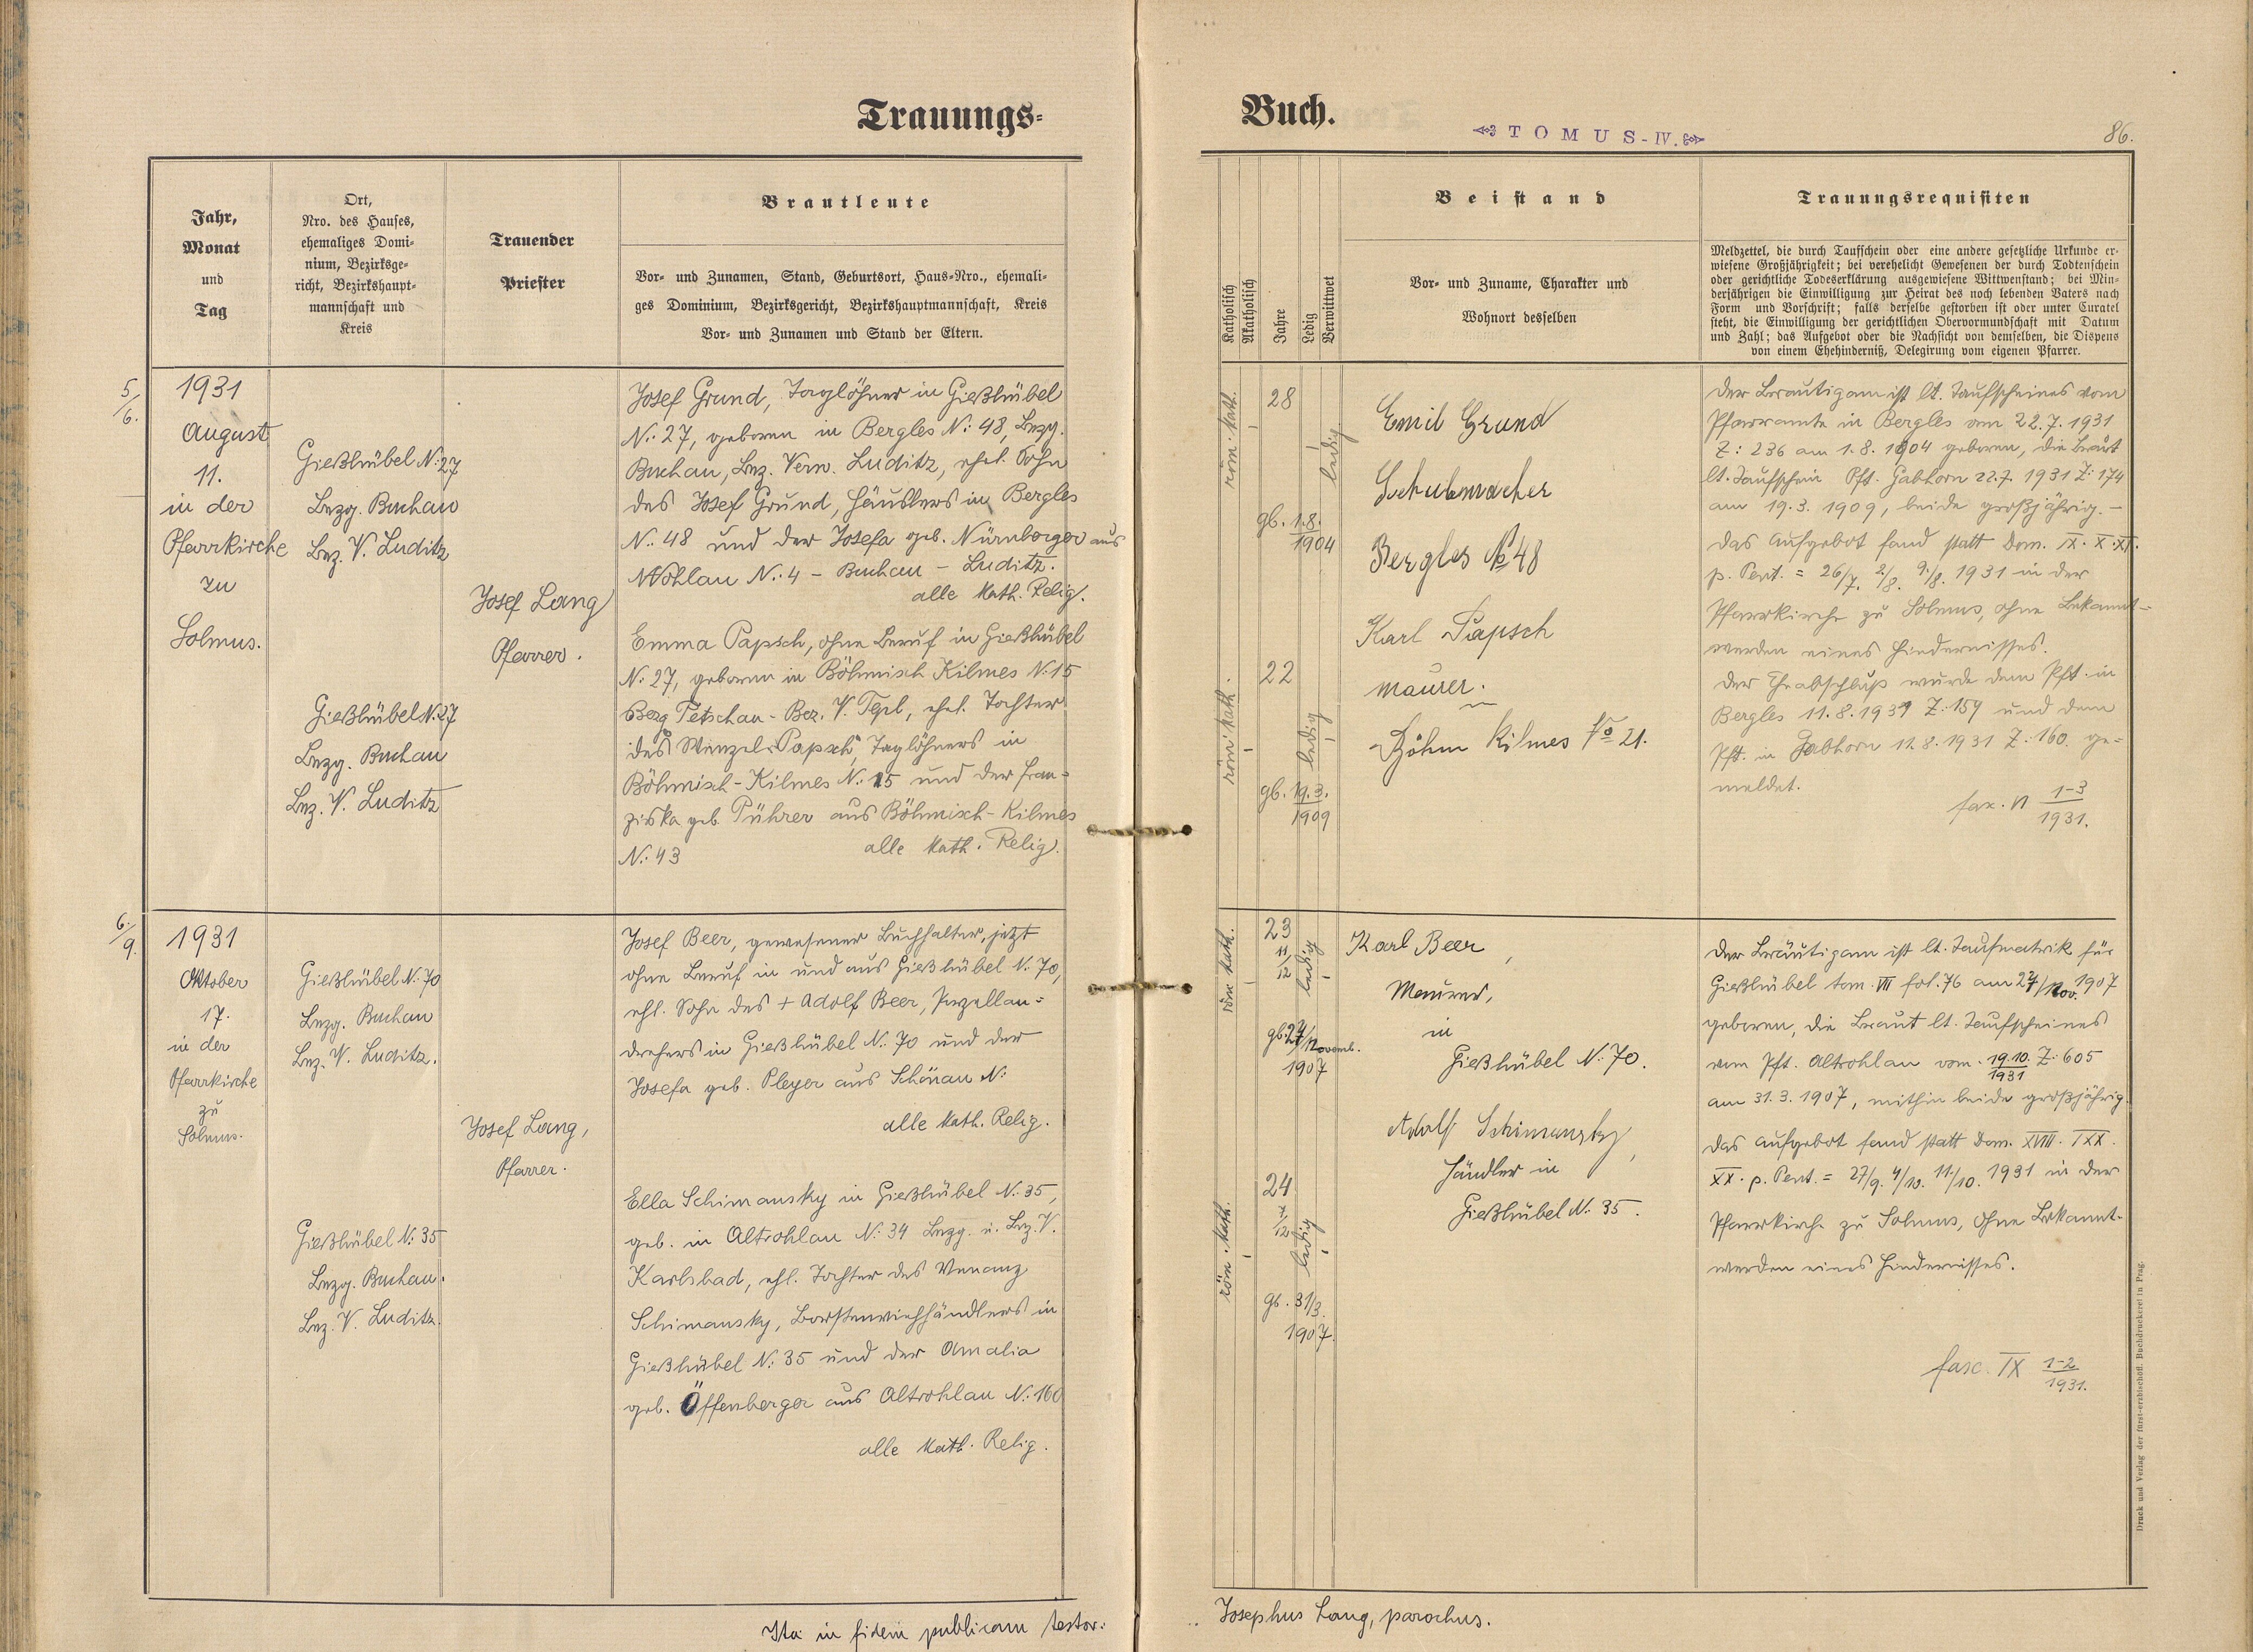 Trauungs-
Jahr,
Monat
und
Tag
Ort,
Nro. des Hauses,
ehemaliges Domi-
nium, Bezirksge-
richt, Bezirkshaupt-
mannschaft und
Kreis
Trauender
Priester
Brautleute
Vor- und Zunamen, Stand, Geburtsort, Haus-Nro., ehemali-
ges Dominium, Bezirksgericht, Bezirkshauptmannschaft, Kreis
Vor- und Zunamen und Stand der Eltern.
5/6.
1931
August
11.
in der
Pfarrkirche
zu
Solmus.
Gießhübel N: 27
Bezg. Buchau
Bez. V. Luditz
Gießhübel N: 27
Bezg. Buchau
Bez. V. Luditz
Josef Lang
Pfarrer.
Josef Grund, Taglöhner in Gießhübel
N: 27, geboren in Bergles N: 48, Bezg.
Buchau, Bez. Verw. Luditz, ehel. Sohn
des Josef Grund, Häuslers in Bergles
N: 48 und der Josefa geb. Nürnberger aus
Mohlau N: 4 - Buchau - Luditz.
alle kath. Relig.
Emma Papsch, ohne Beruf in Gießhübel
N: 27, geboren in Böhmisch Kilmes N: 15
Bezg Petschau - Bez. V. Tepl, ehel. Tochter
des Wenzel Papsch, Taglöhners in
Böhmisch-Kilmes N: 15 und der Fran-
ziska geb. Pührer aus Böhmisch-Kilmes
N: 43
alle kath. Relig.
6./9.
1931
Oktober
17.
in der
Pfarrkirche
zu
Solmus.
Gießhübel N: 70
Bezg. Buchau
Bez. V. Luditz.
Gießhübel N: 35
Bezg. Buchau.
Bez. V. Luditz.
Josef Lang,
Pfarrer.
Josef Beer, gewesener Buchhalter, jetzt
ohne Beruf in und aus Gießhübel N: 70,
ehl. Sohn des + Adolf Beer, Porzellan-
drehers in Gießhübel N: 70 und der
Josefa geb. Pleyer aus Schönau N:
alle kath. Relig.
Ella Schimansky in Gießhübel N: 35,
geb. in Altrohlau N: 34 Bezg. u. Bez. V.
Karlsbad, ehl. Tochter des Venanz
Schimansky, Borstenviehhändlers in
Gießhübel N: 35 und der Amalia
geb. Öffenberger aus Altrohlau N: 160
alle kath. Relig.
Ita in fidem publicam testor:
Buch.
TOMUS-IV.
86.
Katholisch
Akatholisch
Jahre
Ledig
Verwittwet
Beistand
Vor- und Zuname, Charakter und
Wohnort desselben
Trauungsrequisiten
Meldzettel, die durch Taufschein oder eine andere gesetzliche Urkunde er-
wiesene Großjährigkeit; bei verehelicht Gewesenen der durch Todtenschein
oder gerichtliche Todeserklärung ausgewiesene Wittwenstand; bei Min-
derjährigen die Einwilligung zur Heirat des noch lebenden Vaters nach
Form und Vorschrift; falls derselbe gestorben ist oder unter Curatel
steht, die Einwilligung der gerichtlichen Obervormundschaft mit Datum
und Zahl; das Aufgebot oder die Nachsicht von demselben, die Dispens
von einem Ehehinderniß, Delegirung vom eigenen Pfarrer.
röm. kath.
28
ledig
gb. 1.8.
1904
röm. kath.
22
ledig
gb. 19.3.
1909
Emil Grund
Schuhmacher
Bergles No 48
Karl Papsch
Maurer.
in
Böhm Kilmes No 21.
Der Bräutigam ist lt. Taufscheines vom
Pfarramte in Bergles vom 22.7.1931
Z: 236 am 1.8.1904 geboren, die Braut
lt. Taufschein Pft. Gabhorn 22.7.1931 Z: 174
am 19.3.1909, beide großjährig. -
Das Aufgebot fand statt Dom. IX. X. XI.
p. Pent. = 26/7. 2/8. 9./8. 1931 in der
Pfarrkirche zu Solmus, ohne Bekannt-
werden eines Hindernisses.
Der Eheabschluß wurde dem Pft. in
Bergles 11.8.1931 Z: 159 und dem
Pft. in Gabhorn 11.8.1931 Z: 160. ge-
meldet.
fax. VI 1-3
1931.
röm kath.
23
11/12
ledig
gb. 27/Novemb.
1907
röm. kath.
24
ledig
gb. 31/3.
1907.
Karl Beer,
Maurer,
in
Gießhübel N: 70.
Adolf Schimansky,
Händler in
Gießhübel N: 35.
Der Bräutigam ist lt. Taufmatrik für
Gießhübel tom. VII fol. 76 am 27/Nov. 1907
geboren, die Braut lt. Taufscheines
vom Pft. Altrohlau vom 19.10. Z: 605
1931
am 31.3.1907, mithin beide großjährig.
Das Aufgebot fand statt Dom. XVIII. IXX.
XX. p. Pent. = 27/9. 4/10. 11/10. 1931 in der
Pfarrkirche zu Solmus, ohne Bekannt-
werden eines Hindernisses.
fasc. IX 1-2
1931.
Josephus Lang, parochus.
Druck und Verlag der fürst-erzbischöfl. Buchdruckerei in Prag.